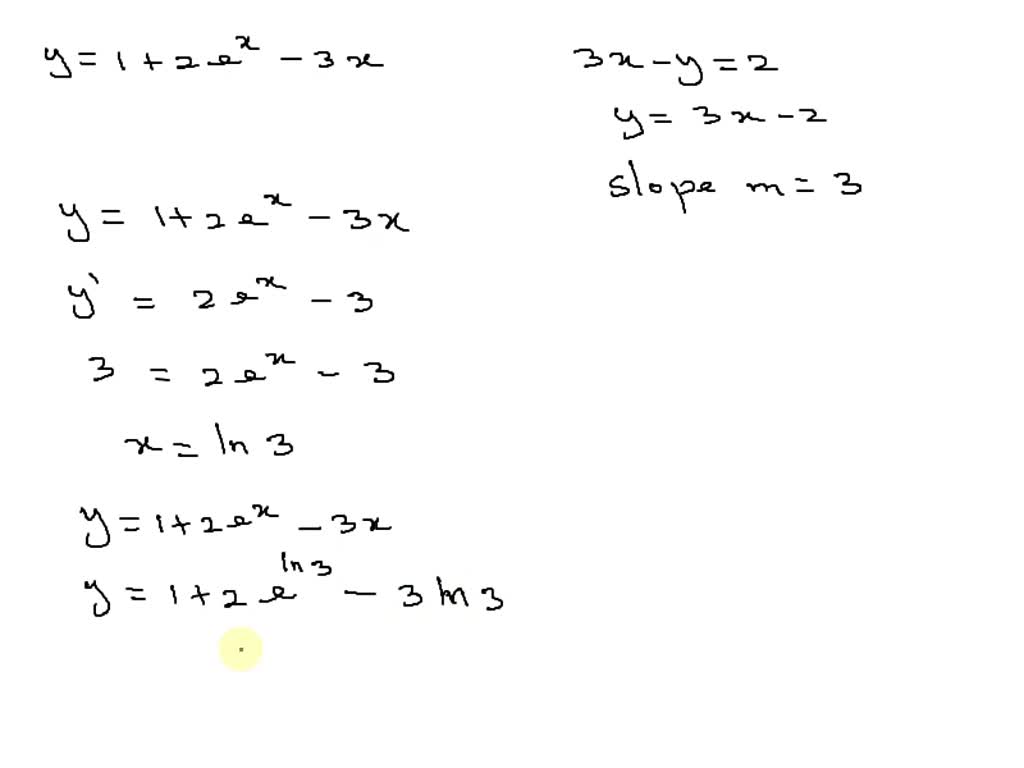 y = 1 + 2e^x - 3x
y = 1 + 2e^x - 3x
y' = 2e^x - 3
3 = 2e^x - 3
x = ln 3
y = 1 + 2e^x - 3x
y = 1 + 2e^ln 3 - 3 ln 3
3x - y = 2
y = 3x - 2
slope m = 3